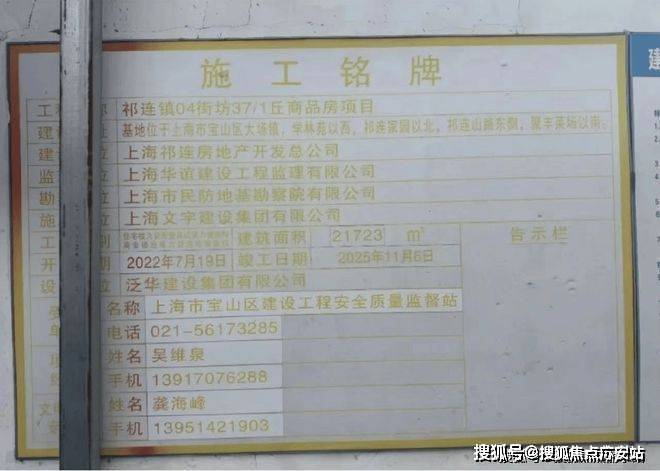 施工铭牌
工 称 祁连镇04街坊37/1丘商品房项目
建 址 基地位于上南市宝山区大场镇,学林苑以西,祁连家园以北,祁连山路东侧,聚丰菜场以南。
建 位 上海祁连房地产开发总公司
监 位 上海华谊建设工程监理有限公司
勘 位 上海市民防地基勘察院有限公司
施 位 上海文宇建设集团有限公司
工 别 建筑面积 21723 m² 告示栏
开 期 2022年7月19日 竣工日期 2025年11月6日
设 位 泛华建设集团有限公司
名称 上海市宝山区建设工程安全质量监督站
单 电话 021-56173285
项 姓名 吴维泉
经 手机 13917076288
文 姓名 龚海峰
手机 13951421903
建
搜狐号@搜狐焦点沂安站